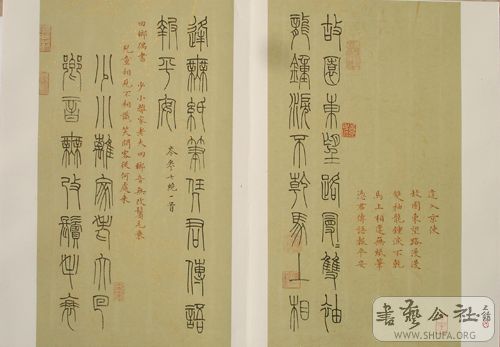 逢入京使
故園東望路漫漫
雙袖龍鍾淚不乾
馬上相逢無紙筆
憑君傳語報平安
故園東望路曼〻雙袖
龍鐘淚不乾馬上相
逢無紙筆任君傳語
報平安
岑參七絕一首
回鄉偶書 少小離家老大回鄉音無改鬢毛衰
兒童相見不相識笑問客從何處來
少小離家老大回
鄉音無改鬢毛衰
書藝公社
WWW.SHUFA.ORG